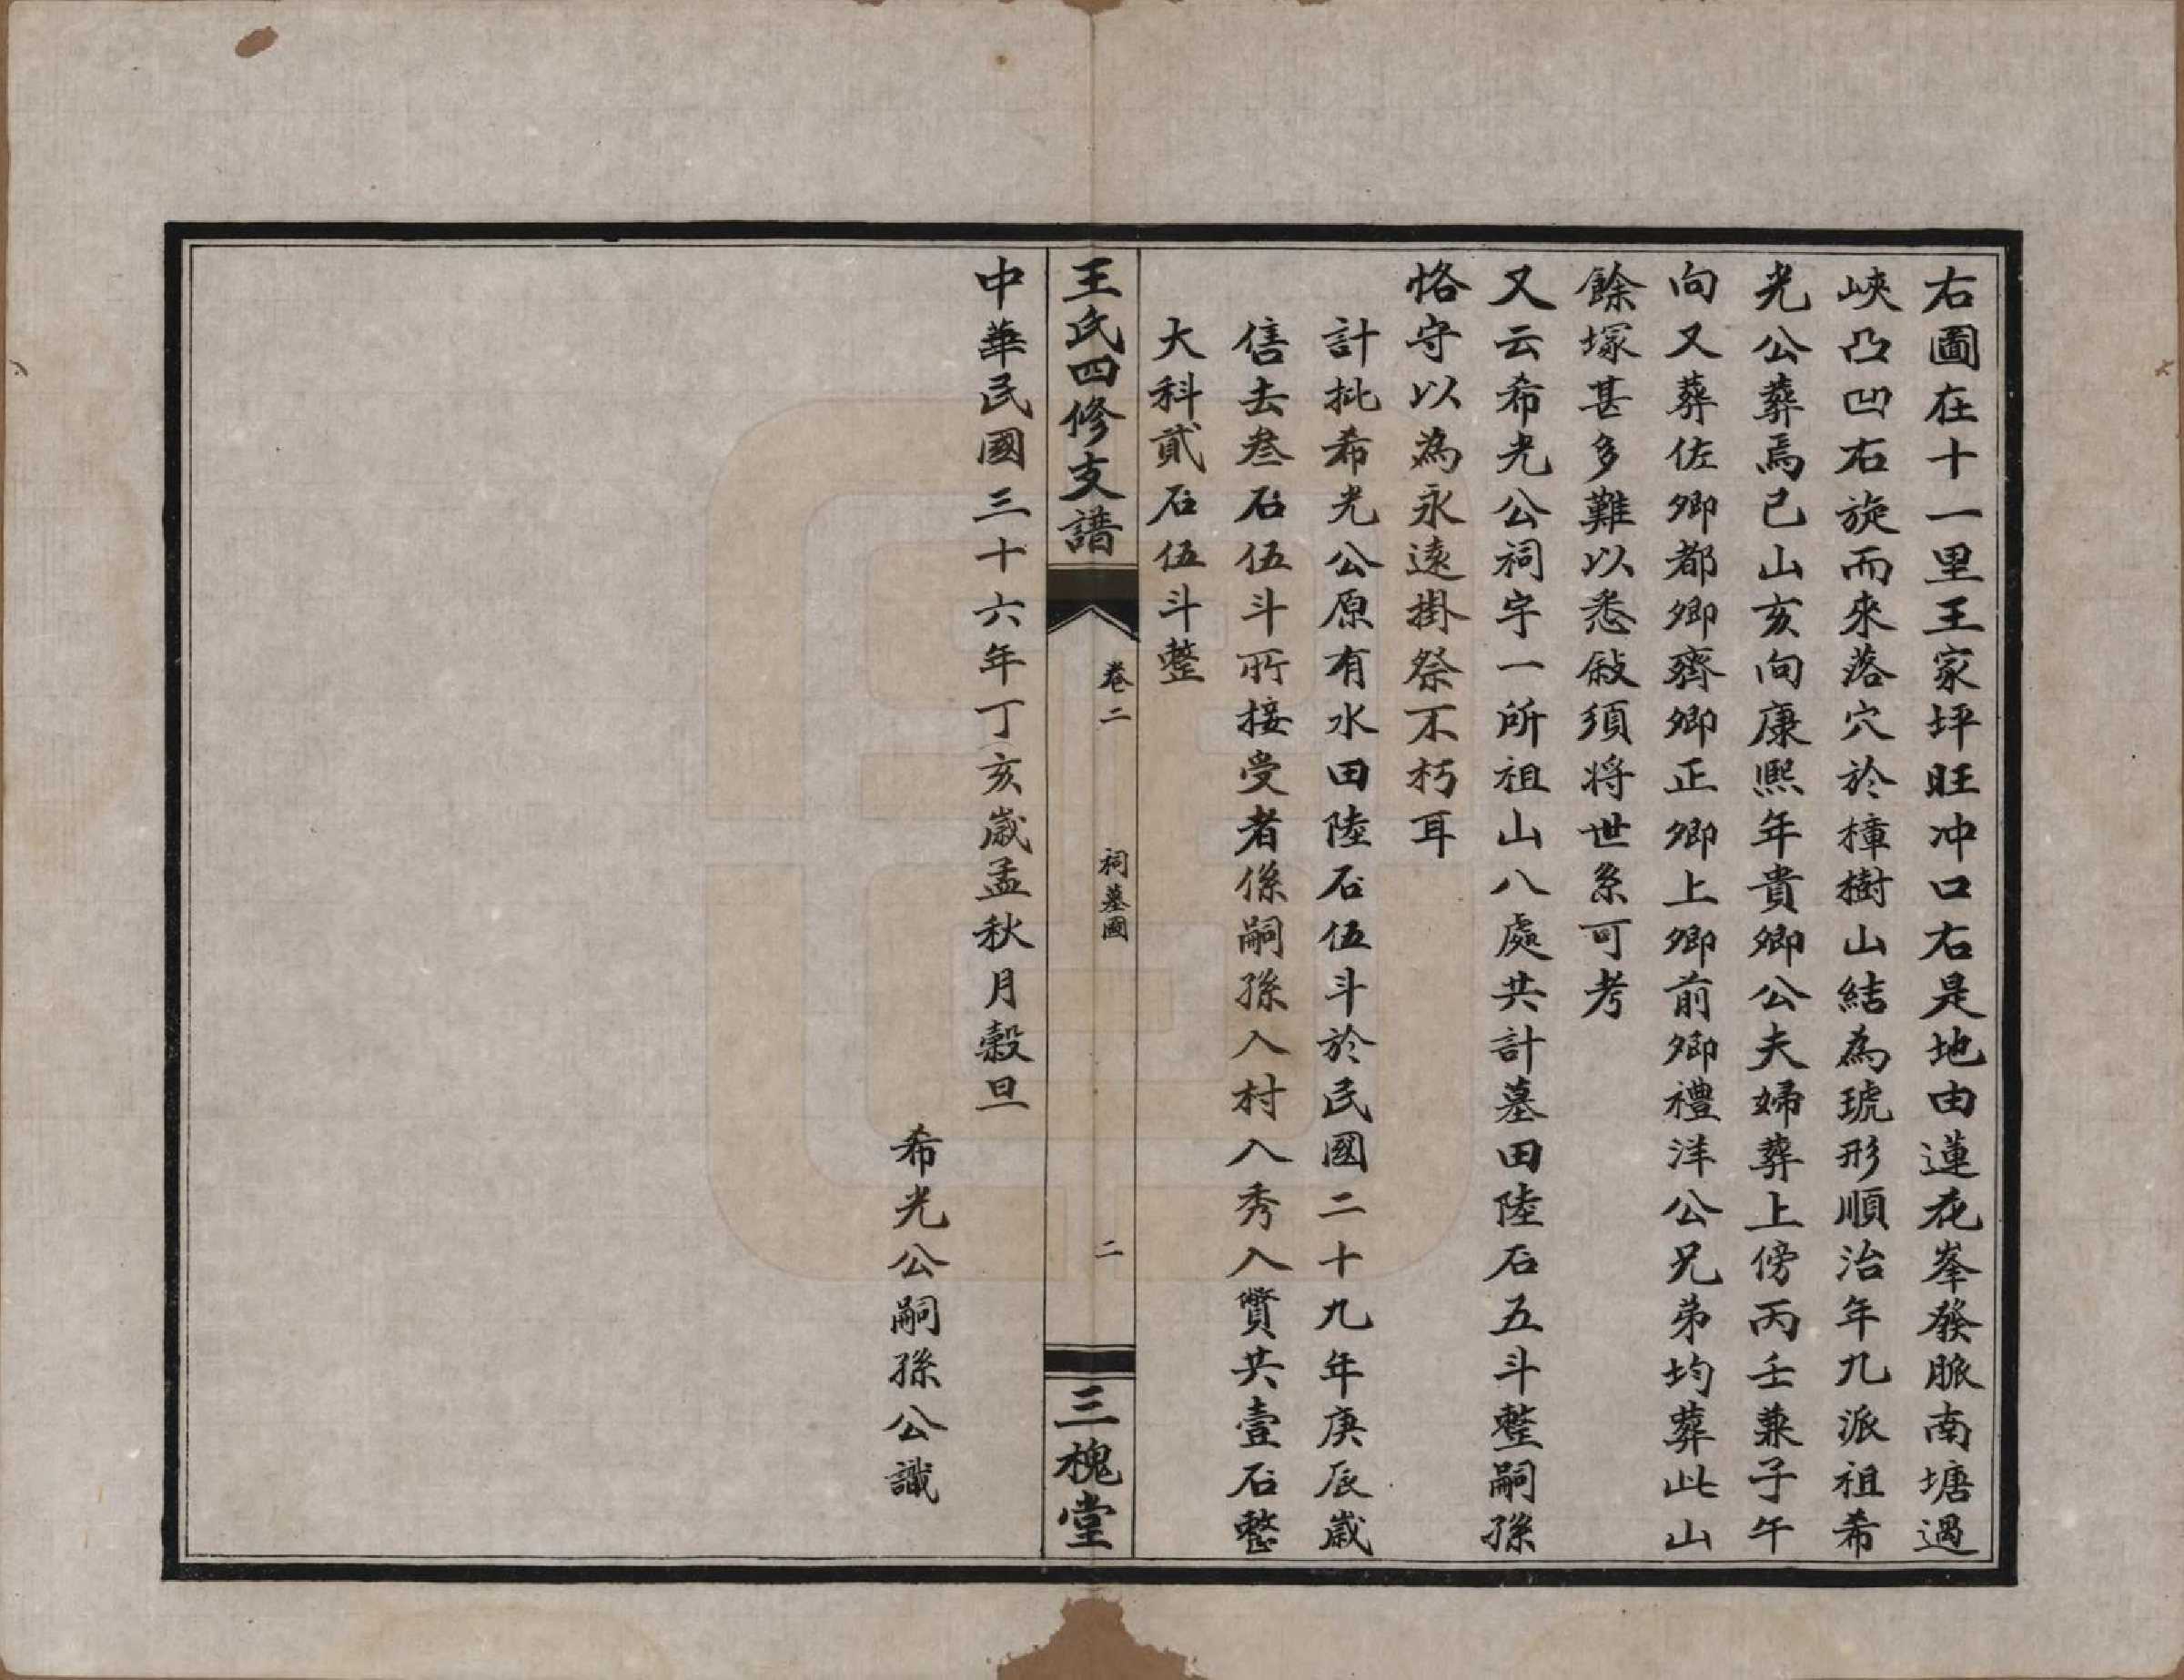 右圖在十一里王家坪旺冲口右是地由蓮花峯發脈南塘過
峽凸凹右旋而來落穴於樟樹山結為琥形順治年九派祖希
光公葬焉己山亥向康熙年貴卿公夫婦葬上傍丙壬兼子午
向又葬佐卿都卿齊卿正卿上卿前卿禮洋公兄弟均葬此山
餘塚甚多難以悉敍須將世系可考
又云希光公祠宇一所祖山八處共計墓田陸石五斗整嗣孫
恪守以為永遠掛祭不朽耳
計批希光公原有水田陸石伍斗於民國二十九年庚辰歲
售去叁石伍斗所接受者係嗣孫入村入秀入贊共壹石整
大科貳石伍斗整
王氏四修支譜
卷二
祠墓圖
二
三槐堂
中華民國三十六年丁亥歲孟秋月穀旦
希光公嗣孫公識